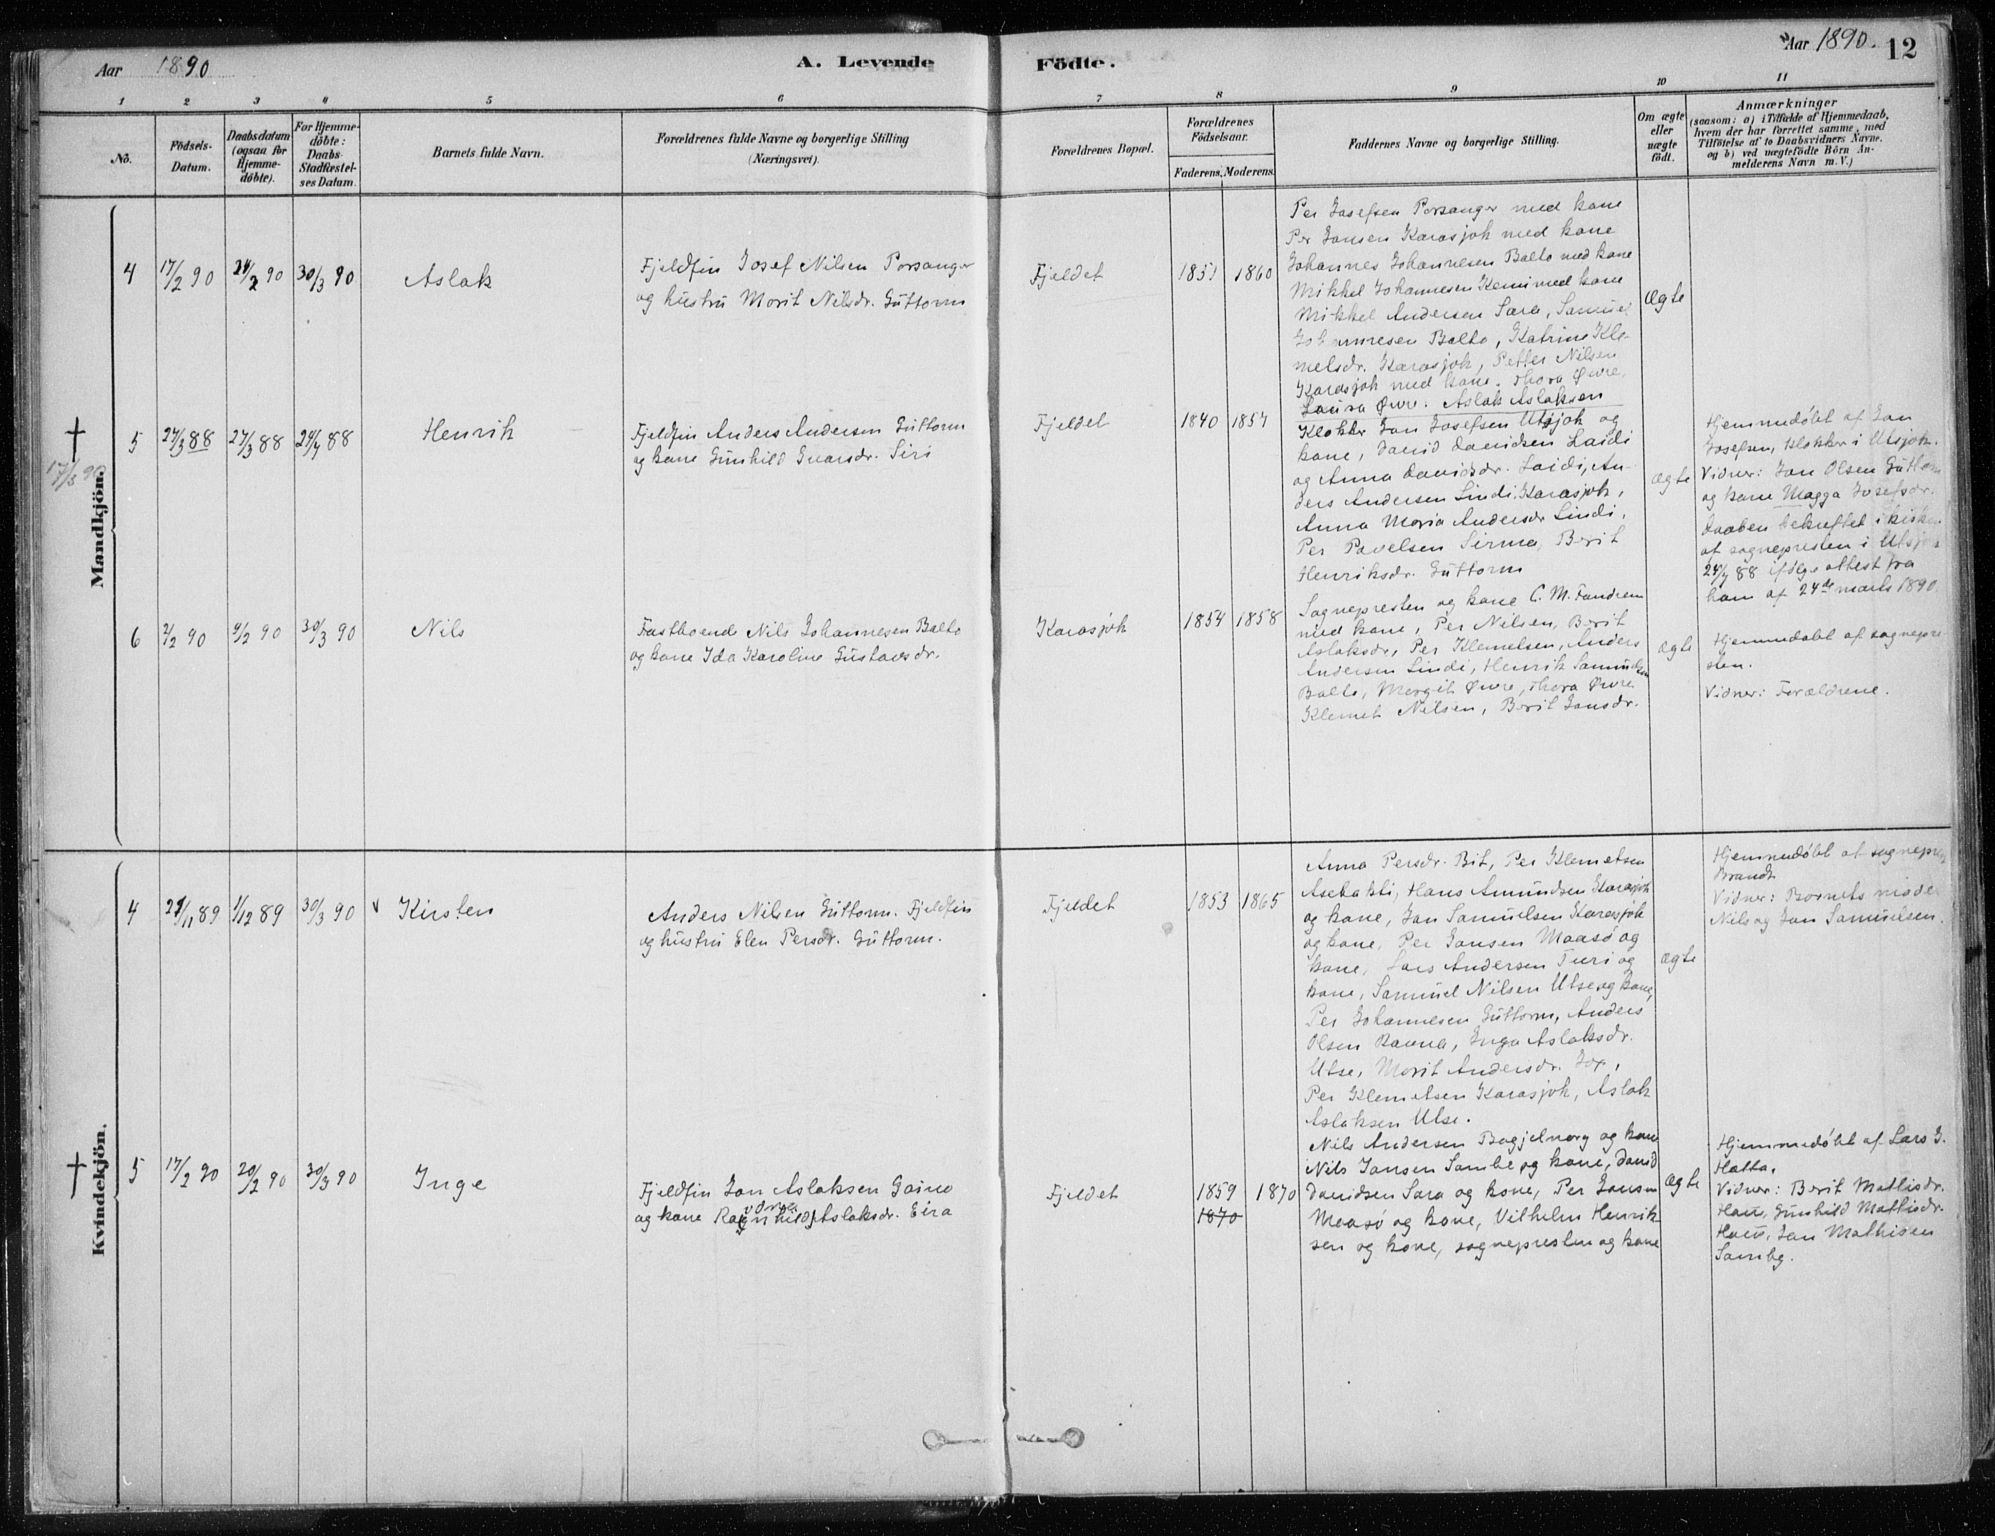 Aar 1890
A. Levende
Födte.
Aar 1890.
12
1 2 3 4 5 6 7 8 9 10 11
No.
Födsels-
Datum.
Daabsdatum
(ogsaa for
Hjemme-
døbte).
For Hjemme-
döbte:
Daabs-
Stadfæstel-
ses Datum.
Barnets fulde Navn.
Forældrenes fulde Navne og borgerlige Stilling
(Næringsvei).
Forældrenes Bopæl.
Forældrenes
Födselsaar.
Faderens. Moderens.
Faddernes Navne og borgerlige Stilling.
Om ægte
eller
uægte
födt.
Anmærkninger
(saasom: a) i Tilfælde af Hjemmedaab,
hvem der har forrettet samme, med
Tilföielse af to Daabsvidners Navne,
og b) ved uægtefödte Börn An-
melderens Navn m. V.)
Mandkjön.
4 17/2 90 24/2 90 30/3 90
Aslak
Fjeldfin Josef Nilsen Porsanger
og hustru Morit Nilsdr. Guttorm
Fjeldet
1851 1860
Per Josefsen Porsanger med kone
Per Jansen Karasjok med kone
Johannes Johannesen Balto med kone
Mikkel Johannesen Kemi med kone
Mikkel Andersen Sara, Samuel
Johannesen Balto, Katrine Kle-
metsdr. Karasjok, Petter Nilsen
Karasjok med kone, Thora Øvre,
Laura Øvre. Aslak Aslaksen
Ægte
17/3 90
5 27/3 88 27/3 88 24/4 88
Henrik
Fjeldfin Anders Andersen Guttorm
og kone Gunhild Ivarsdr. Siri
Fjeldet
1840 1854
Klokker Jan Josefsen Utsjok og
kone, David Davidsen Laidi
og Anna Davidsdr. Laidi, An-
ders Andersen Lindi, Karasjok,
Anna Maria Andersdr Lindi,
Per Pavelsen Sirma, Berit
Henriksdr. Guttorm
Ægte
Hjemmedøbt af Jan
Josefsen, klokker i Utsjok.
Vidner: Jan Olsen Guttorm
og kone Magga Josefsdr.
Daaben bekræftet i kirken
af sognepresten i Utsjok
24/4 88 ifølge attest fra
ham af 24de marts 1890.
6 2/2 90 9/2 90 30/3 90
Nils
Fastboende Nils Johannesen Balto
og kone Ida Karoline Gustavsdr.
Karasjok
1854 1858
Sognepresten og kone C. M. Fandrem
med kone, Per Nilsen, Berit
Aslaksdr, Per Klemetsen, Anders
Andersen Lindi, Henrik Samuelsen
Balto, Margit Øvre, Thora Øvre
Klemet Nilsen, Berit Jonsdr.
Ægte
Hjemmedøbt af sognepre-
sten.
Vidner: Forældrene.
Kvindekjön.
4 27/11 89 1/12 89 30/3 90
Kirsten
Anders Nilsen Guttorm. Fjeldfin
og hustru Elen Persdr. Guttorm.
Fjeldet
1853 1865
Anna Persdr. Bit, Per Klemetsen
Asebakti, Hans Amundsen Karasjok
og kone, Jan Samuelsen Karasjok
og kone, Per Jansen Maasø og
kone, Lars Andersen Turi og
kone, Samuel Nilsen Utse og kone,
Per Johannesen Guttorm, Anders
Olsen Bavna, Inga Aslaksdr.
Utse, Morit Andersdr. Jox,
Per Klemetsen Karasjok, Aslak
Aslaksen Utse.
Ægte
Hjemmedøbt af sognepre
Brandt
Vidner: Barnets moder
Nils og Jan Samuelsen.
5 17/2 90 20/2 90 30/3 90
Inge
Fjeldfin Jan Aslaksen Gaino
og kone Ragnhild Aslaksdr. Eira
Fjeldet
1859 1870
1870
Nils Andersen Bagjelvarg og kone
Nils Jansen Sambe og kone, David
Davidsen Sara og kone, Per Jansen
Maasø og kone, Vilhelm Henrik
sen og kone, sognepresten og kone
Ægte
Hjemmedøbt af Lars J.
Hatta.
Vidner: Berit Mathisdr.
Hau, Gunhild Mathisdr.
Hau, Jan Mathisen
Samby.